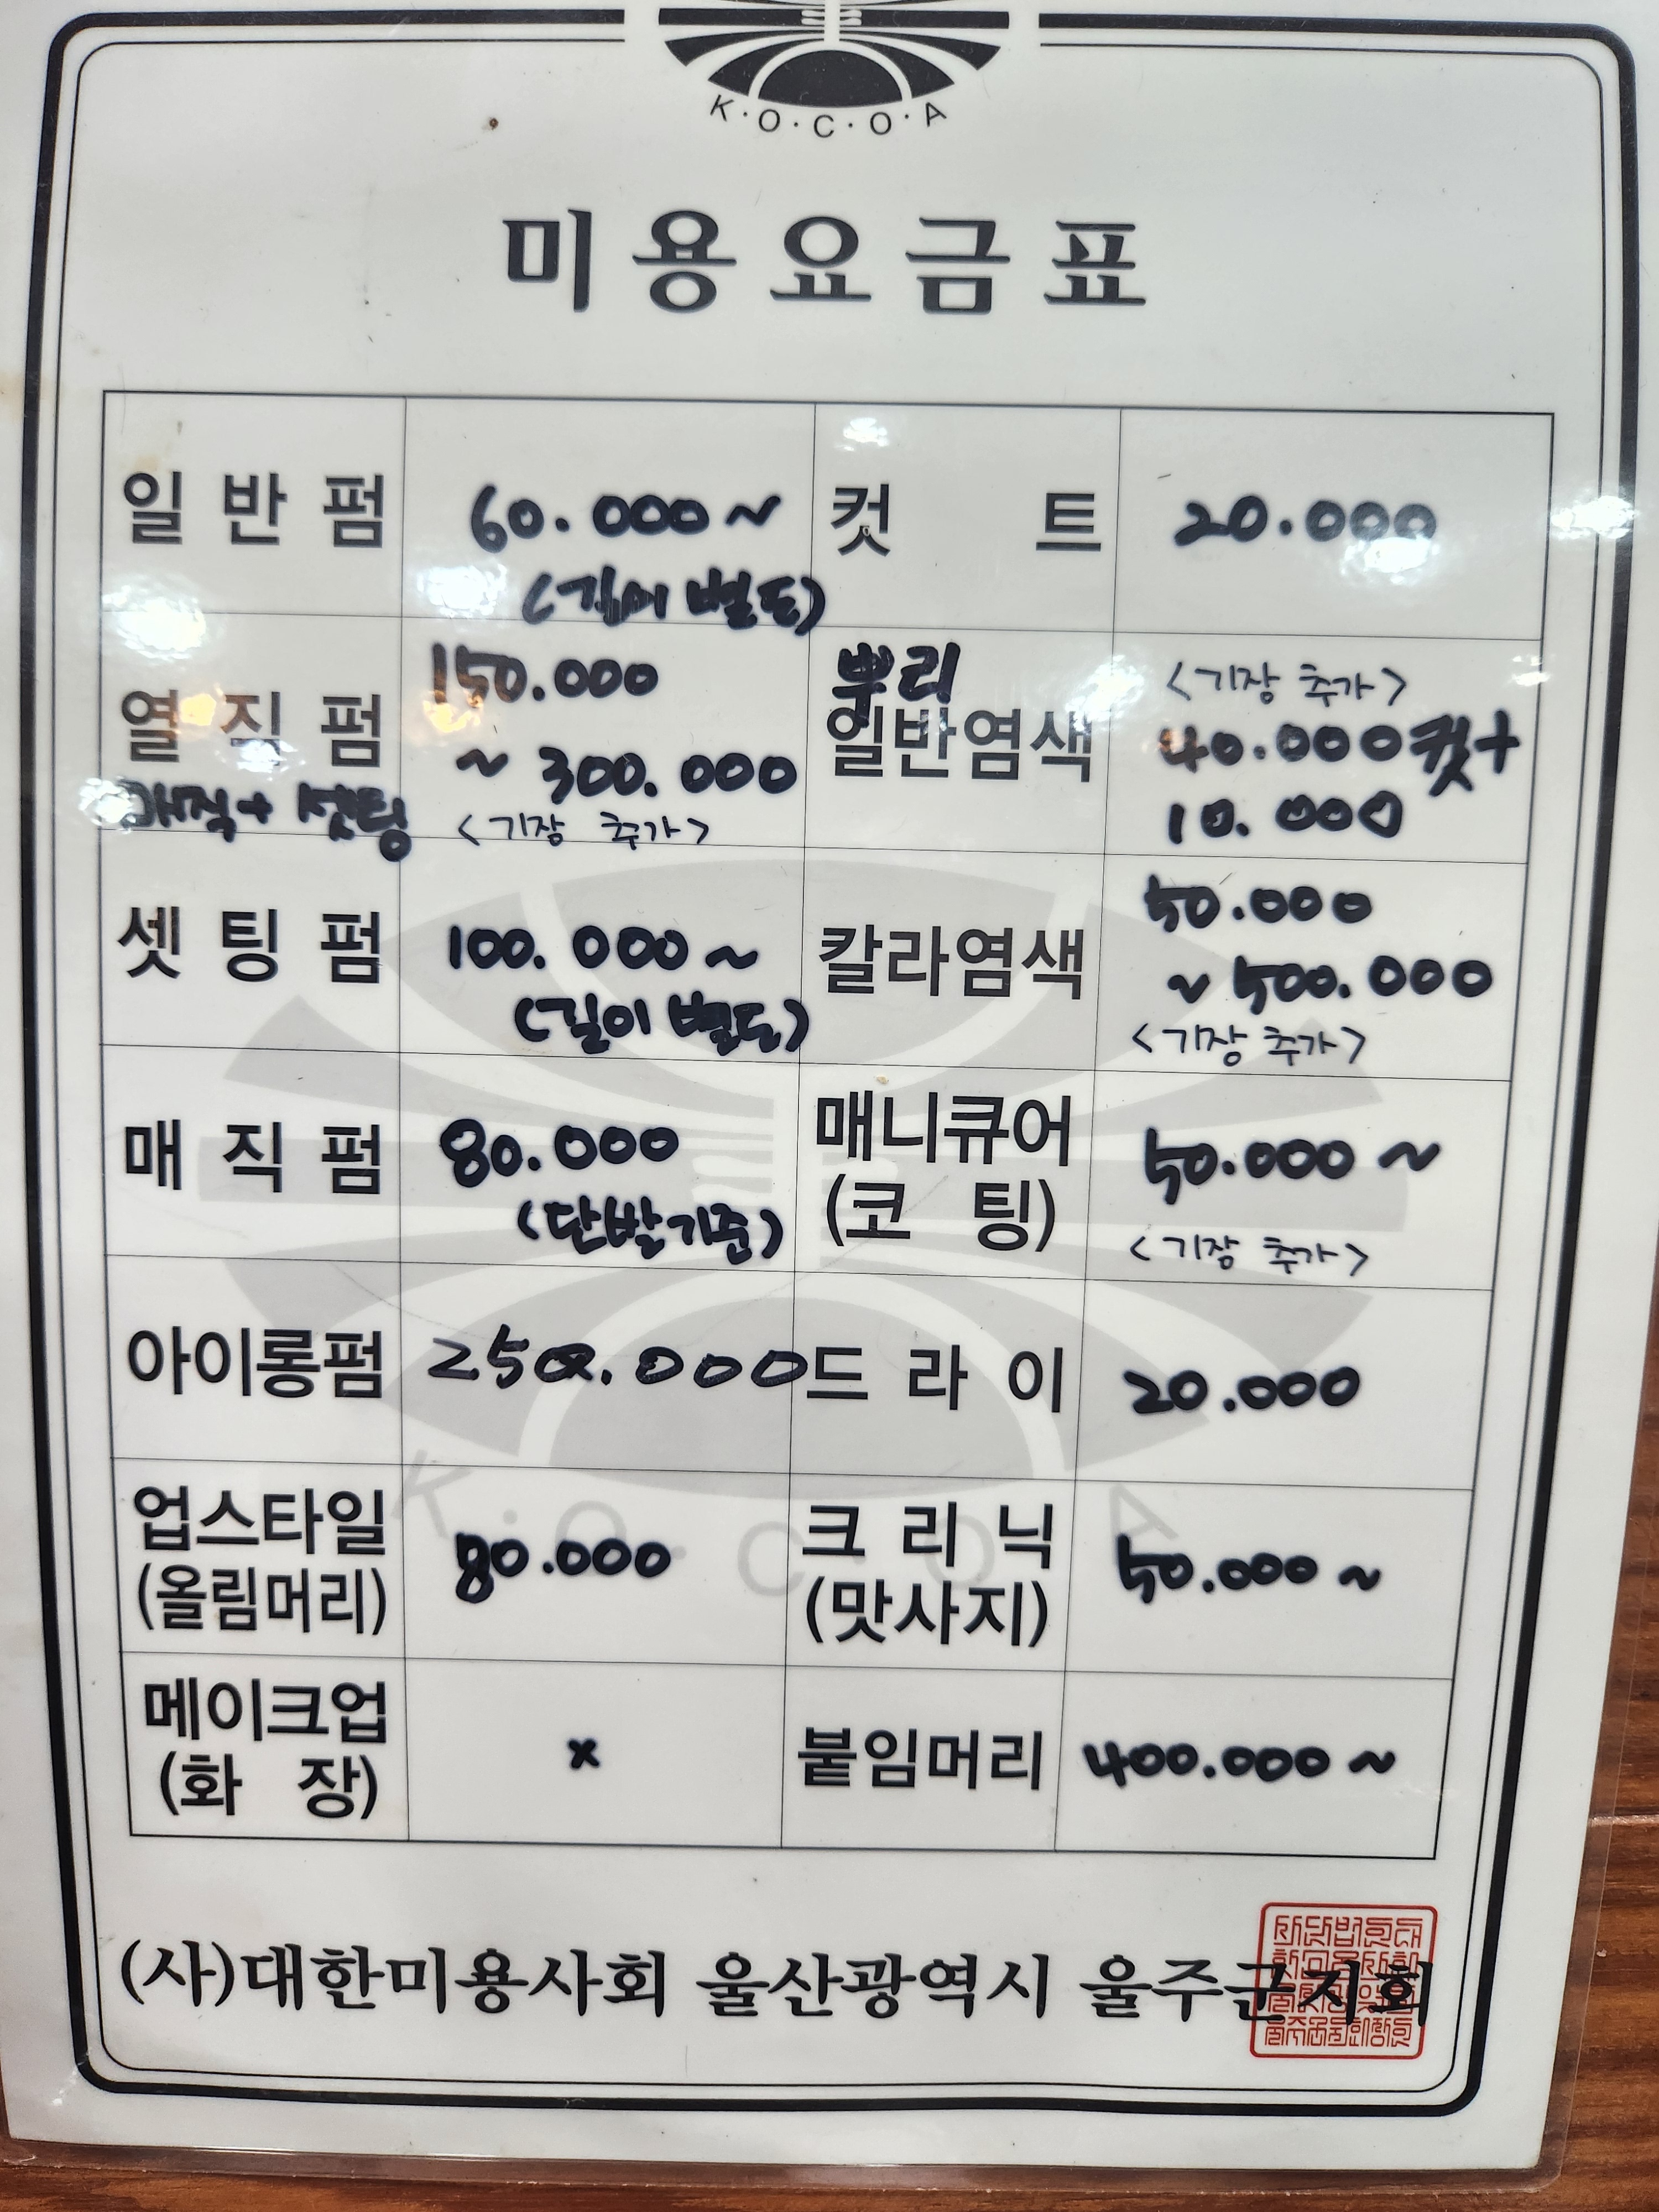 K·O·C·O·A
미용요금표
일반펌 60.000~ 컷트 20.000
(길이 별도)
150.000 뿌리 <기장 추가>
열직펌 ~ 300.000 일반염색 40.000 컷+
매직+ 셋팅 <기장 추가> 10.000
셋팅펌 100.000~ 칼라염색 50.000
(길이 별도) ~ 500.000
<기장 추가>
매직펌 80.000 매니큐어 50.000~
(단발기준) (코팅) <기장 추가>
아이롱펌 250.000 드라이 20.000
업스타일 80.000 크리닉 50.000~
(올림머리) (맛사지)
메이크업 x 붙임머리 400.000~
(화장)
(사)대한미용사회 울산광역시 울주군지회